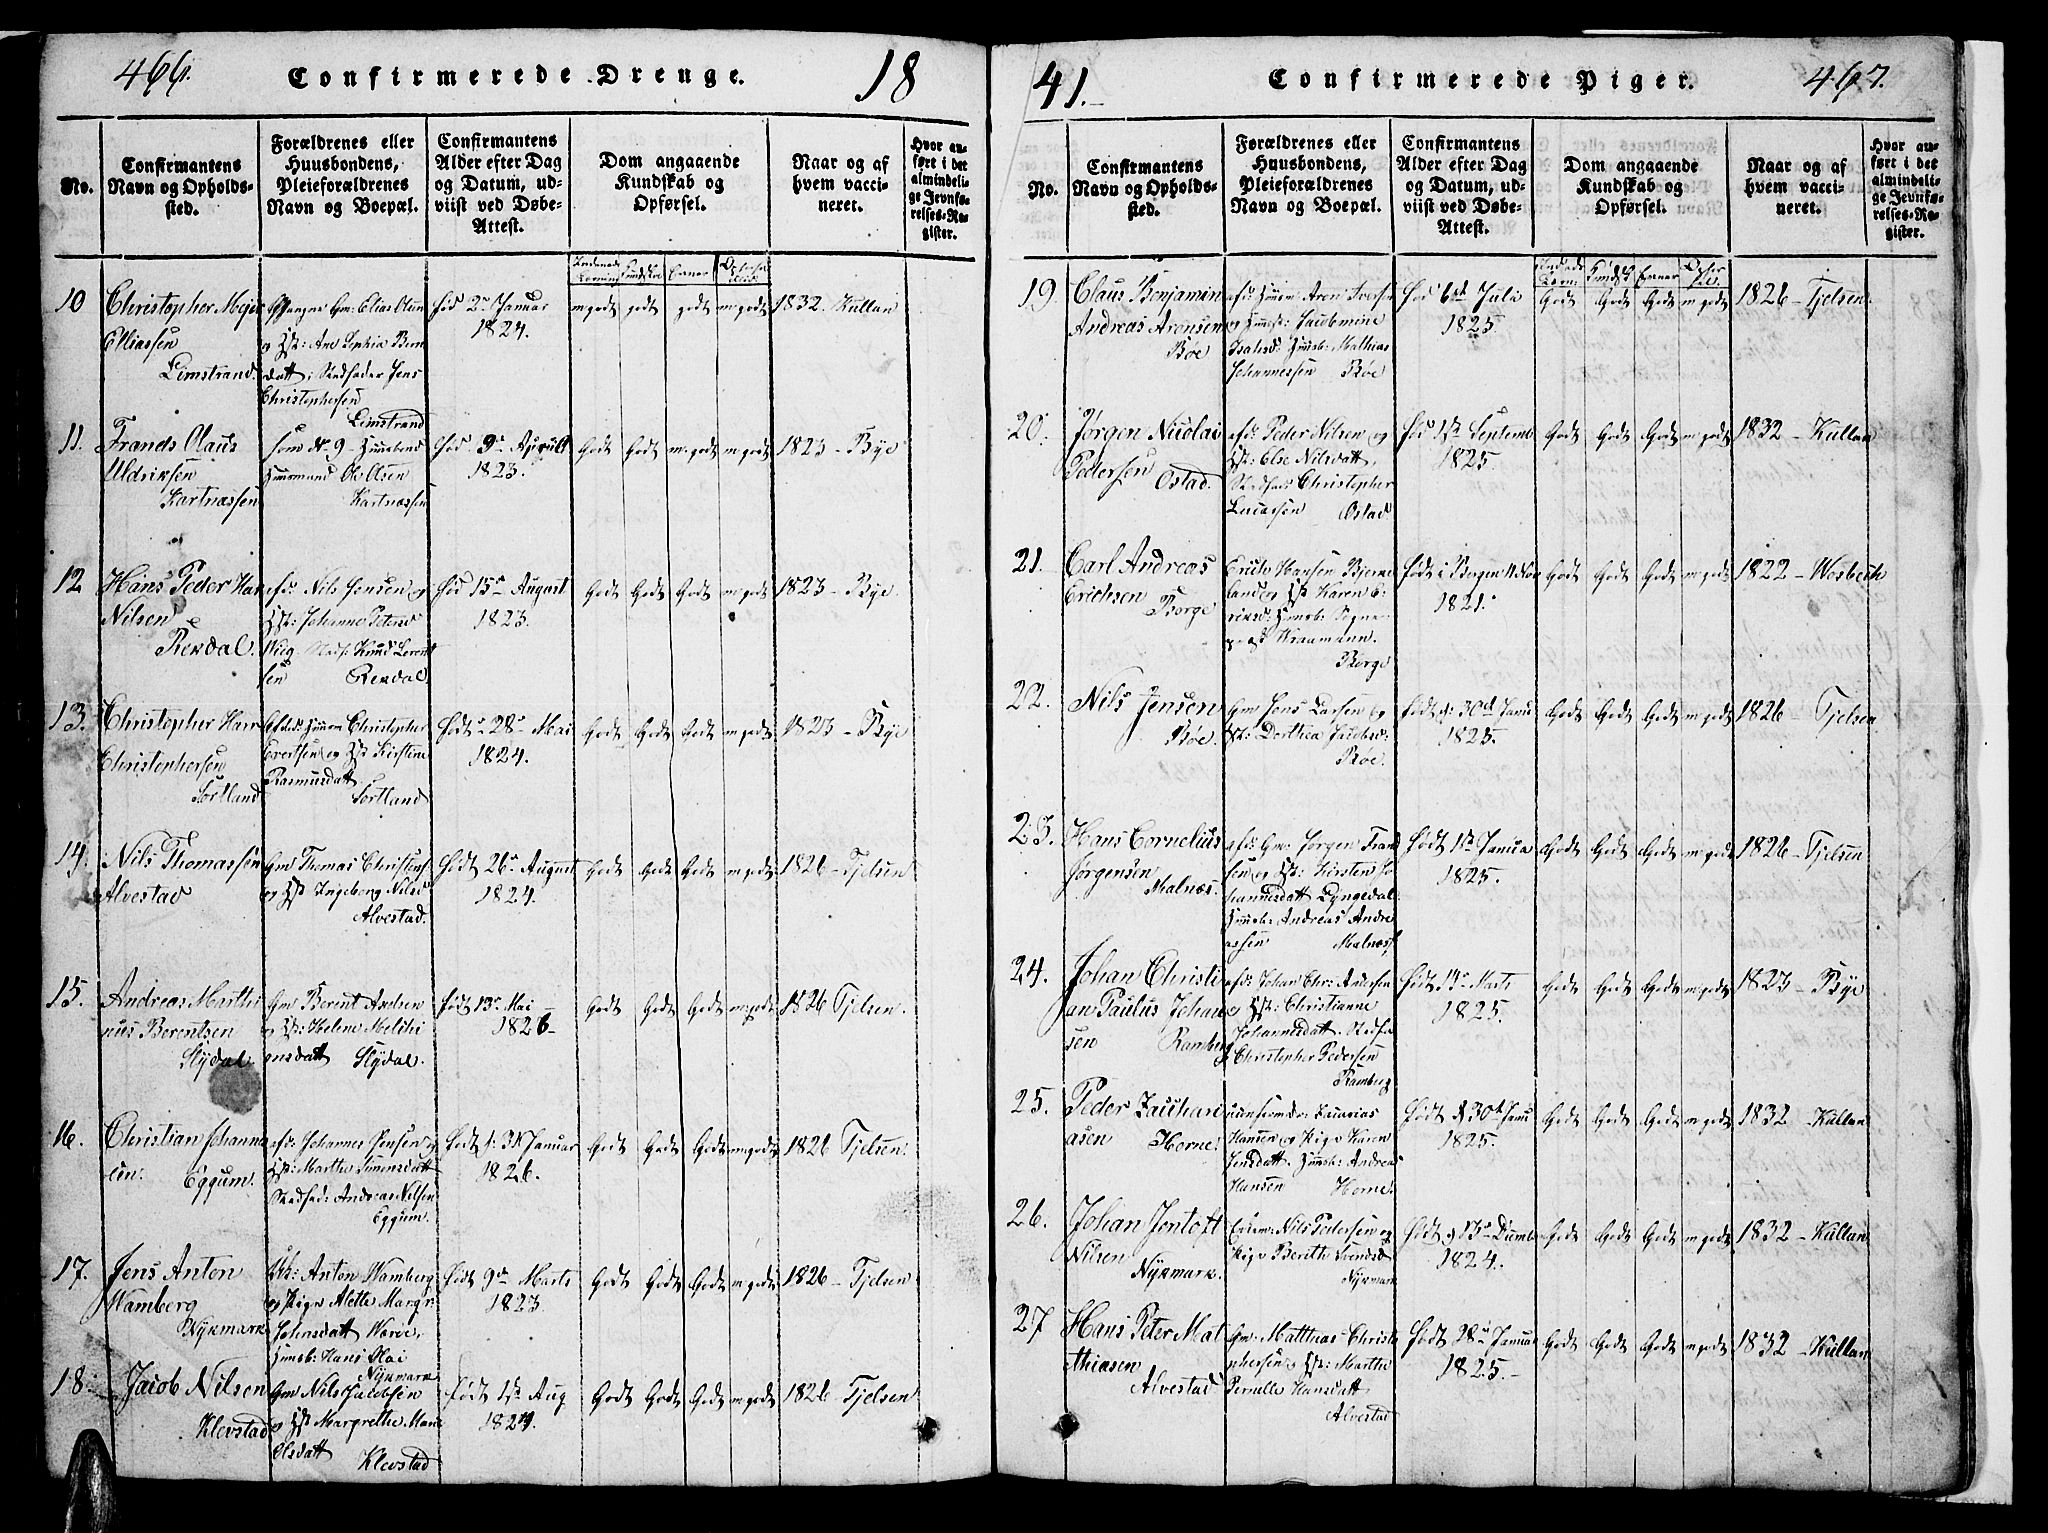 466.
Confirmerede Drenge.
18
No.
Confirmantens
Navn og Opholds-
sted.
Forældrenes eller
Huusbondens,
Pleieforældrenes
Navn og Boepæl.
Confirmantens
Alder efter Dag
og Datum, ud-
viist ved Døbe-
Attest.
Dom angaaende
Kundskab og
Opførsel.
Naar og af
hvem vacci-
neret.
Hvor an-
ført i det
almindeli-
ge Jevnfø-
relses-Re-
gister.
10
Christopher
Elliassen
Limstrand.
Gm: Elias
Ane Sophia
Stedfader Jens
Christophersen
Limstrand
Fød 2n Januar
1824.
m godt godt godt m godt
1832 - Kullan
11.
Frands Olaus
Uldriksen
Kartnæssen
Som No 9
Huusmand Ole Olsen
Kartnæssen
Fød 9n
1823.
Godt Godt m: godt m godt
1823 - Bye
12
Hans Peder Han
Nilsen
Rexdal.
Nils Jensen og
Johanne Peters
Knud Lorent
sen Rexdal.
Fød 15n August
1823.
Godt Godt Godt m godt
1823 - Bye
13.
Christopher Han
Christophersen
Sortland
Christopher
Evertsen og Kirstine
Rasmusdatt
Sortland
Født 28n Mai
1824.
Godt Godt Godt m godt
1823 - Bye
14.
Nils Thomassen
Alvestad
Gm Thomas Christens
og Ingeborg Nilsd
Alvestad.
Født 26n August
1824.
Godt Godt Godt m godt
1826 - Tjelsen
15.
Andreas Marthi
nus Berentsen
Slydal
Gm Berent Andsen
og Helene Melchi
orsdatt Slydal.
Født 13n Mai
1826
Godt Godt Godt m: godt
1826 Tjelsen.
16.
Christian Johanne
sen. Eggum.
Johannes Jensen og
Marthe Simensdatt
Stedfad: Andreas Nilsen
Eggum.
Født Januar
1826.
Godt Godt Godt m: godt
1826 Tjelsen.
17.
Jens Anton
Wamberg
Nykmark
Anton Wamberg
og Pige Alethe Margr:
Johnsdatt
Huusb: Hans Olai
Nykmark
Født 9n Marts
1823
Godt Godt Godt m godt
1826 - Tjelsen
18.
Jacob Nilsen
Klevstad
Gm Nils Jacobsen
og Margrethe Mari
Olsdatt
Klevstad
Født 1n Aug
1824.
Godt Godt Godt m godt
1826 - Tjelsen
41.
Confirmerede Piger.
467.
No.
Confirmantens
Navn og Opholds-
sted.
Forældrenes eller
Huusbondens,
Pleieforældrenes
Navn og Boepæl.
Confirmantens
Alder efter Dag
og Datum, ud-
viist ved Døbe-
Attest.
Dom angaaende
Kundskab og
Opførsel.
Naar og af
hvem vacci-
neret.
Hvor an-
ført i det
almindeli-
ge Jevnfø-
relses-Re-
gister.
19.
Claus Benjamin
Andreas Arensen
Bøe
Aren Iversen
og Jacobmine
Isaksd: Huusb: Mathias
Johannessen Bøe
Fød 6d Julii
1825.
Godt Godt Godt m godt
1826 - Tjelsen.
20.
Jørgen Nicolai
Pedersen Ostad.
Peder Nilsen og
Else Nilsdatt.
Stedfad: Christopher
Lucassen Ostad
Fød 1n Septemb
1825.
Godt Godt Godt m godt
1832 - Kullan
21.
Carl Andreas
Erichsen Borge
Hansen Bjerne
land og Karen E
riksd: Huusb: Sogne
præst Kraamann.
Borge
Født i Bergen
1821.
Godt Godt Godt m godt
1822 - Wosbech
22.
Nils Jensen
Bøe.
Gm Jens Larsen og
Dorthea Jacobsd:
Bøe.
Født 30d Janu
1825.
Godt Godt Godt m godt
1826 - Tjelsen
23.
Hans Cornelius
Jørgensen
Malnæs.
Gm: Jørgen Fran
sen og Kirsten Jo
hannesdatt Lyngedal
Huusb: Andreas Andre
assen Malnæs
Født 1n Janua
1825.
Godt Godt Godt m godt
1826 - Tjelsen
24.
Johan Christi
an Paulus Johan
sen Ramberg
Johan Chr: Andersen
og Christianne
Johannesdatt. Stedfa
Christopher Pedersen
Ramberg
Født 13n Marts
1825.
Godt Godt Godt m: godt
1823 - Bye
25.
Peder Zachari
asen Horne.
Zacarias
Hansen og Pige Karen
Jensdatt. Huusb: Andreas
Hansen Horne.
Født 30n Janu
1825.
Godt Godt Godt m godt
1832 - Kullan
26.
Johan Jentoft
Nilsen Nykmark.
Nils Pedersen og
Pige Berithe Svendsd
Nykmark
Født 13n
1824.
Godt Godt Godt m godt
1832 - Kullan
27
Hans Peter Mat
thiasen
Alvestad
Gm: Matthias Christo
phersen og Marthe
Pernille Hansdatt
Alvestad
Født 28n Janua
1825.-
Godt Godt Godt m godt
1832 - Kullan